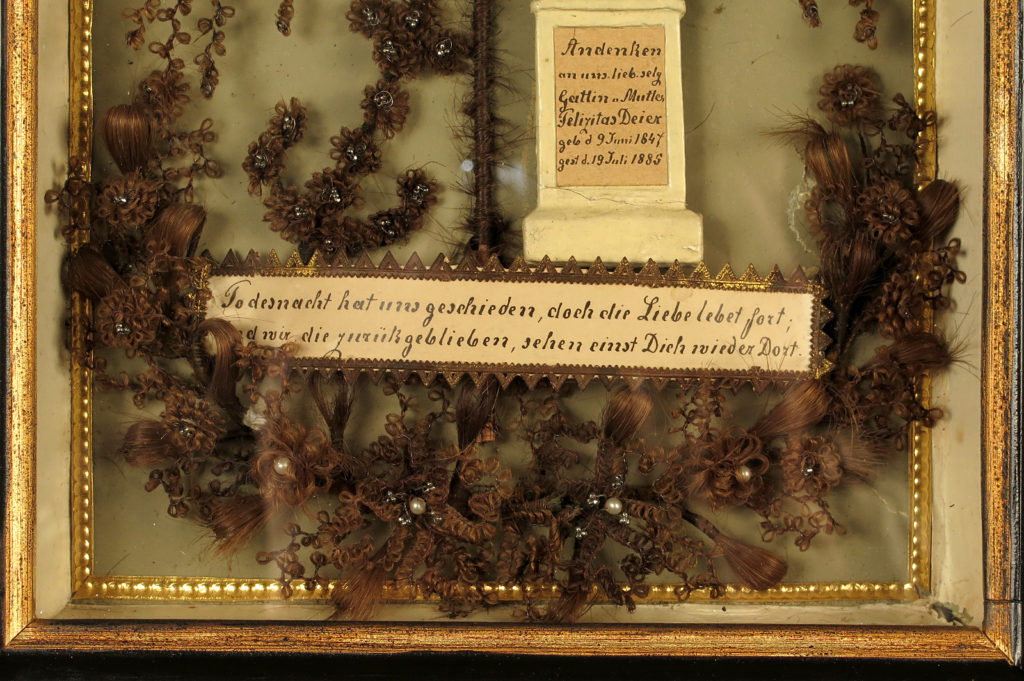 Andenken
an uns. lieb. selg
Gattin u Mutter
Felizitas Deier
geb. d 9 Juni 1847
gest d. 19 Juli 1885
Todesnacht hat uns geschieden, doch die Liebe lebet fort;
wir, die zurükgeblieben, sehen einst Dich wieder Dort.